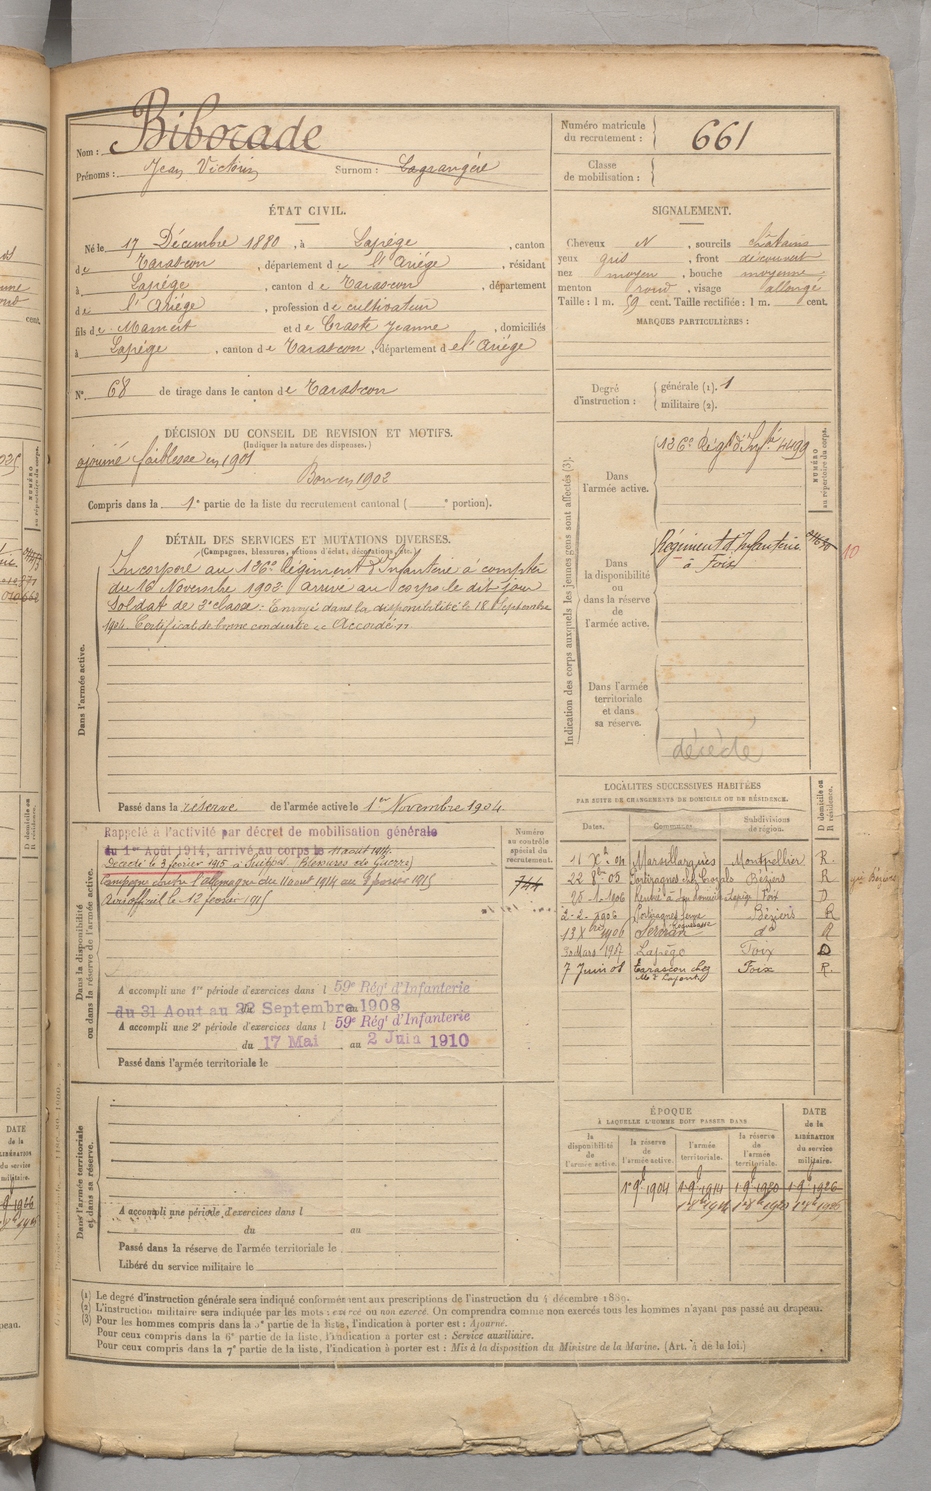 Nom : Biborade
Prénoms : Jean Victorin Surnom : Lagrangère
Numéro matricule du recrutement : 661
Classe de mobilisation :
ÉTAT CIVIL.
Né le 17 Décembre 1880, à Lapège, canton
de Tarascon, département de l'Ariége, résidant
à Lapége, canton de Tarascon, département
de l'Ariége, profession de cultivateur
fils de Mamert et de Craste Jeanne, domiciliés
à Lapége, canton de Tarascon, département de l'Ariége
N° 68 de tirage dans le canton de Tarascon
SIGNALEMENT.
Cheveux N, sourcils châtains
yeux gris, front découvert
nez moyen, bouche moyenne
menton rond, visage allongé
Taille : 1 m. 59 cent. Taille rectifiée : 1 m. cent.
MARQUES PARTICULIÈRES :
Degré d'instruction : générale (1). 1
militaire (2).
DÉCISION DU CONSEIL DE REVISION ET MOTIFS.
(Indiquer la nature des dispenses.)
ajourné faiblesse en 1901
Bon en 1902
Compris dans la 1e partie de la liste du recrutement cantonal ( e portion).
DÉTAIL DES SERVICES ET MUTATIONS DIVERSES.
(Campagnes, blessures, actions d'éclat, décorations, etc.)
Dans l'armée active.
Incorporé au 136e Régiment d'Infanterie à compter
du 16 Novembre 1902 arrivé au corps le dit jour
Soldat de 2e classe. Envoyé dans la disponibilité le 18 Septembre
1904. Certificat de bonne conduite " Accordé "
Passé dans la réserve de l'armée active le 1er Novembre 1904.
Indication des corps auxquels les jeunes gens sont affectés (3).
NUMÉRO au répertoire du corps.
Dans l'armée active. 136e Régt d'Infie 4499
Dans la disponibilité ou dans la réserve de l'armée active. Régiment d'Infanterie
à Foix
10
Dans l'armée territoriale et dans sa réserve. décédé
Dans la disponibilité ou dans la réserve de l'armée active.
Rappelé à l'activité par décret de mobilisation générale
du 1er Août 1914, arrivé au corps le 11 août 1914.
Décédé le 3 février 1915 à Suippes (Blessures de Guerre)
Campagne contre l'Allemagne du 11 août 1914 au 3 février 1915
Avis officiel le 12 février 1915
Numéro au contrôle spécial du recrutement.
744
A accompli une 1re période d'exercices dans l 59e Régt d'Infanterie
du 31 Aout au 22 Septembre 1908
A accompli une 2e période d'exercices dans l 59e Régt d'Infanterie
du 17 Mai au 2 Juin 1910
Passé dans l'armée territoriale le
LOCALITÉS SUCCESSIVES HABITÉES
PAR SUITE DE CHANGEMENTS DE DOMICILE OU DE RÉSIDENCE.
Dates. Communes. Subdivisions de région. D domicile ou R résidence.
11 Xbre 04 Marsillargues Montpellier R.
22 8bre 05 Béziers R
25-1-1906 Lapège Foix D
2-2-1906 Béziers R
13 Xbre 1906 Servian do R
30 Mars 1907 Lapège Foix D
7 Juin 08 Tarascon chez
Foix R.
Dans l'armée territoriale et dans sa réserve.
A accompli une période d'exercices dans l
du au
Passé dans la réserve de l'armée territoriale le
Libéré du service militaire le
ÉPOQUE
À LAQUELLE L'HOMME DOIT PASSER DANS
DATE de la LIBÉRATION du service militaire.
la disponibilité de l'armée active. la réserve de l'armée active. l'armée territoriale. la réserve de l'armée territoriale.
1 9bre 1904 1 9bre 1914 1 9bre 1920 1 9bre 1926
(1) Le degré d'instruction générale sera indiqué conformément aux prescriptions de l'instruction du 4 décembre 1889.
(2) L'instruction militaire sera indiquée par les mots : exercé ou non exercé. On comprendra comme non exercés tous les hommes n'ayant pas passé au drapeau.
(3) Pour les hommes compris dans la 5e partie de la liste, l'indication à porter est : Ajourné.
Pour ceux compris dans la 6e partie de la liste, l'indication à porter est : Service auxiliaire.
Pour ceux compris dans la 7e partie de la liste, l'indication à porter est : Mis à la disposition du Ministre de la Marine. (Art. 4 de la loi.)